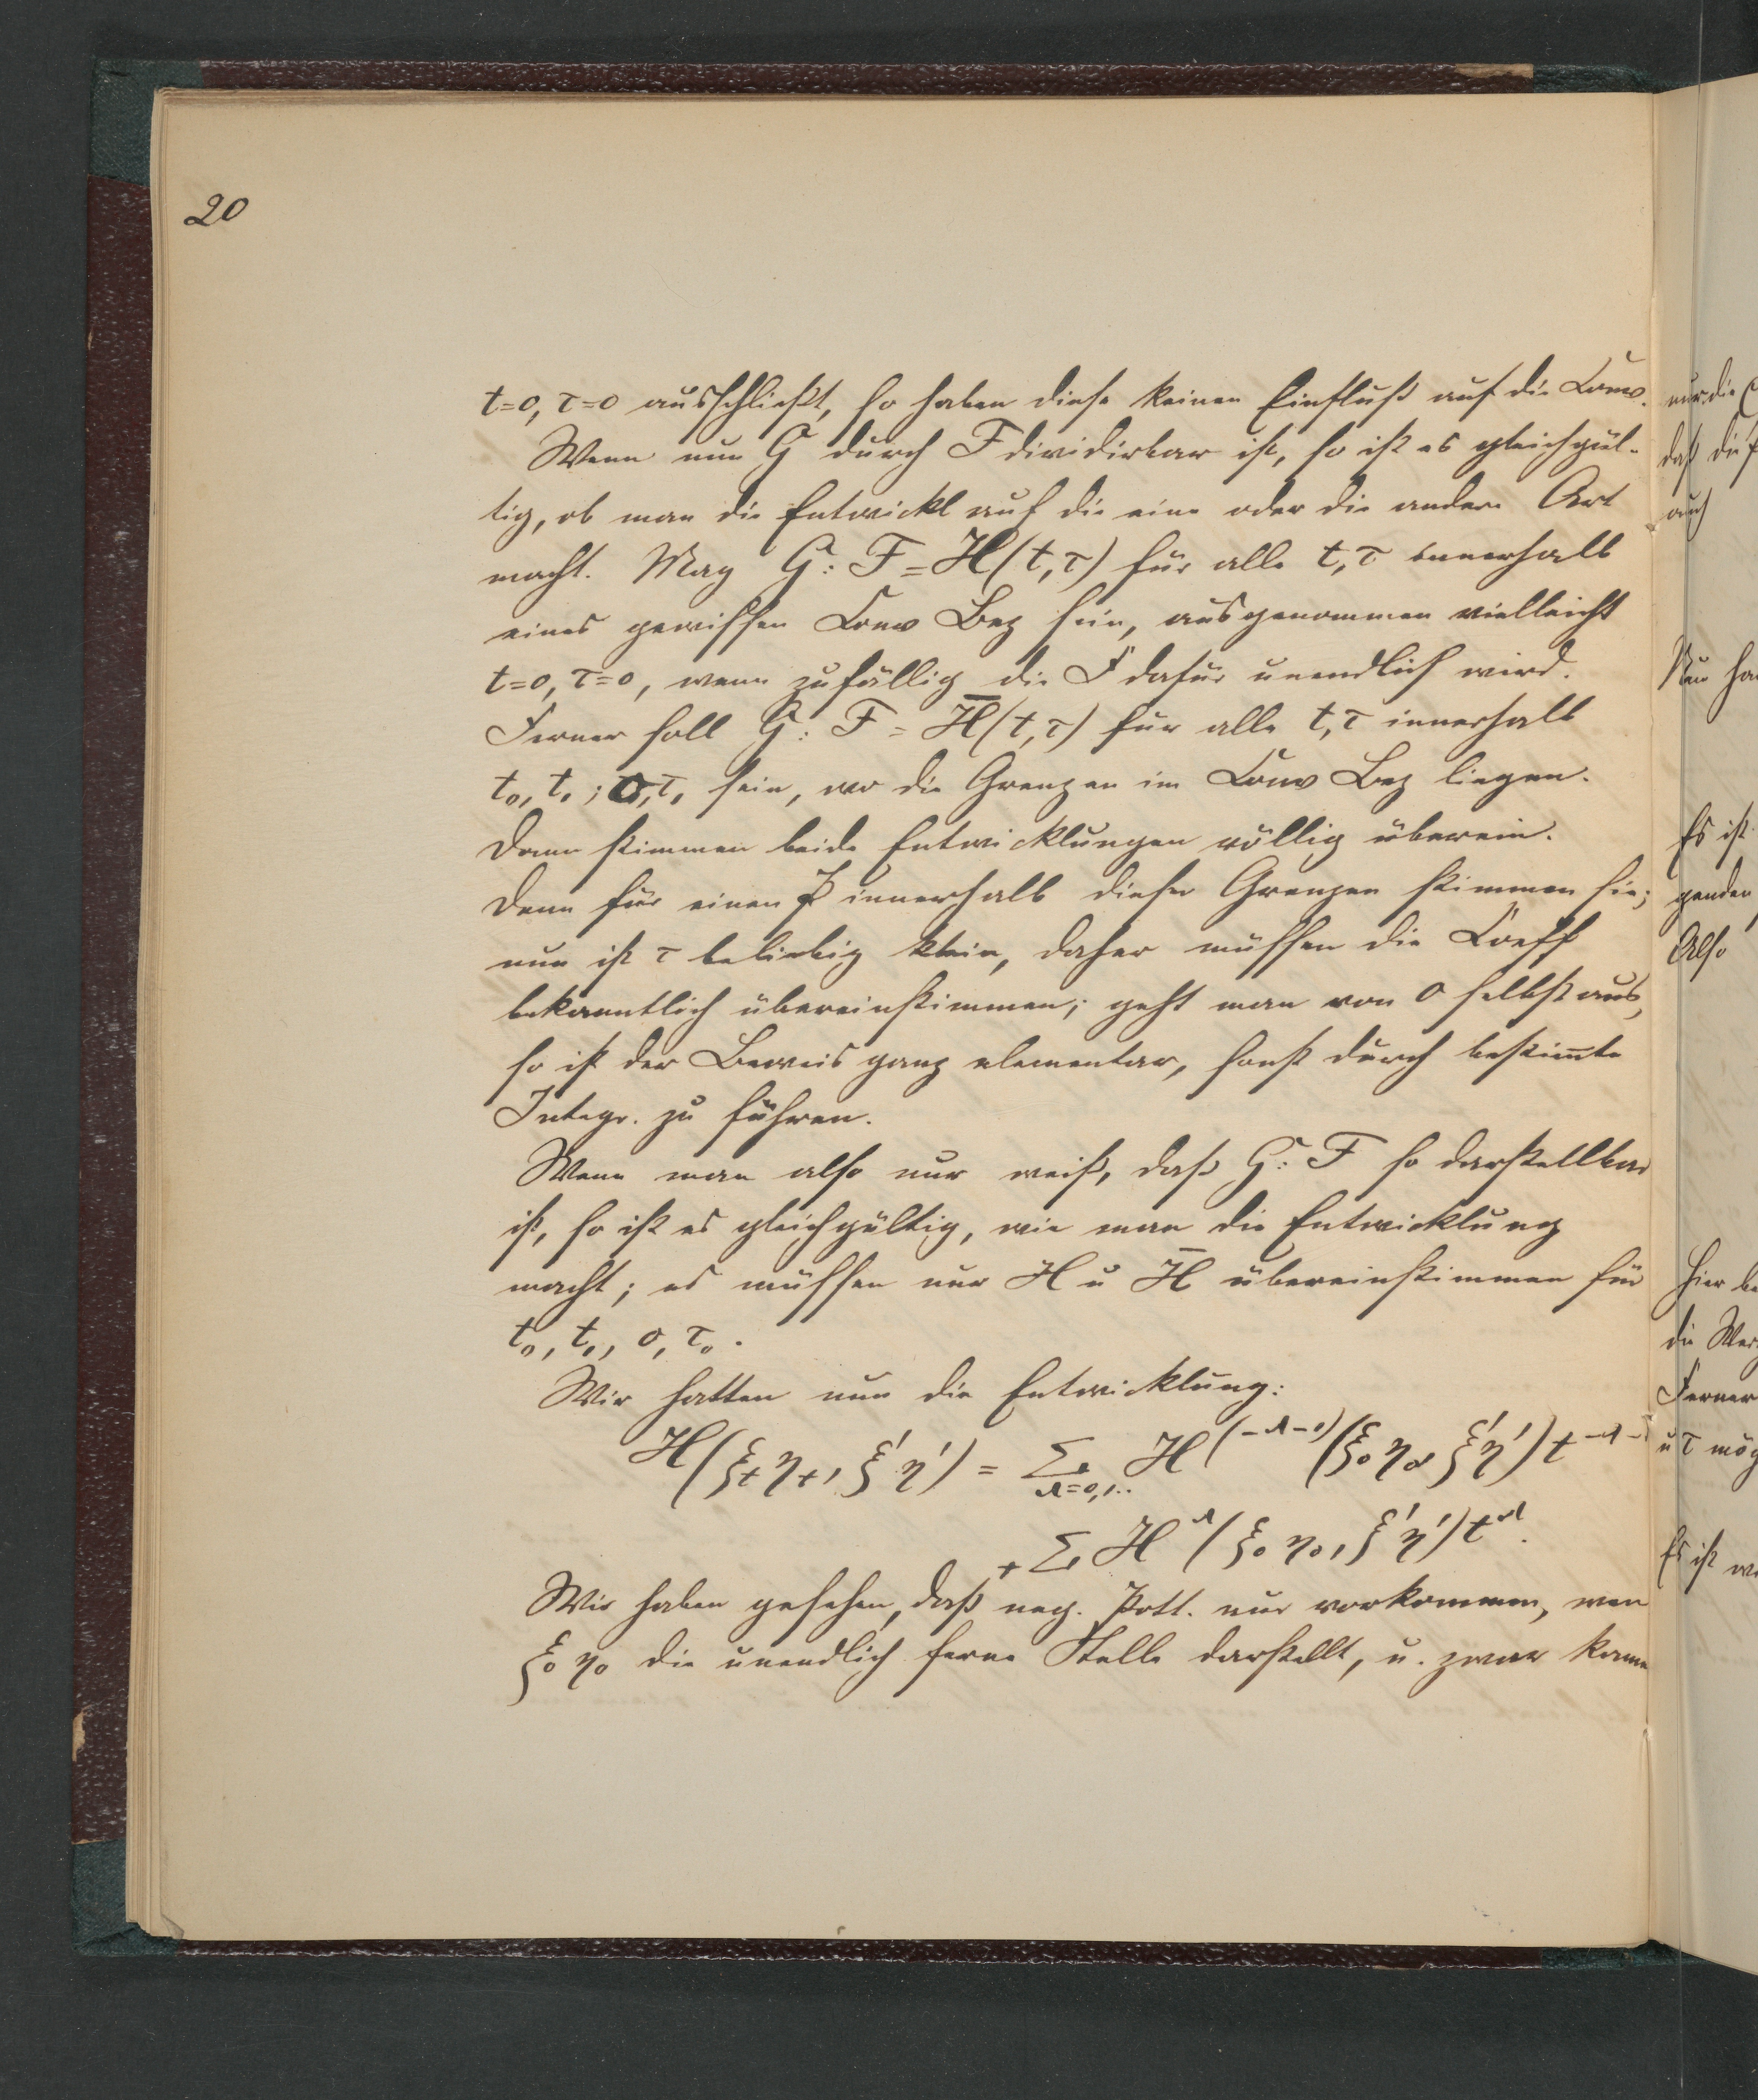 20
t=0, τ=0 ausschließt, so haben diese keinen Einfluß auf die Conv.
Wenn nun G durch F dividirbar ist, so ist es gleichgül-
tig, ob man die Entwickl auf die eine oder die andere Art
macht. Mag G : F = H(t,τ) für alle t,τ innerhalb
eines gewissen Conv Bez sein, ausgenommen vielleicht
t=0, τ=0, wenn zufällig die F dafür unendlich wird.
Ferner soll G : F = H̅(t,τ) für alle t,τ innerhalb
t₀, t₁; 0, τ₁ sein, wo die Grenzen im Conv Bez liegen.
Dann stimmen beide Entwicklungen völlig überein.
Denn für einen innerhalb dieser Grenzen stimmen sie;
nun ist τ beliebig klein, daher müssen die Coeff
bekanntlich übereinstimmen; geht man von 0 selbst aus,
so ist der Beweis ganz elementar, sonst durch bestim̅te
Integr. zu führen.
Wenn man also nur weiß, daß G : F so darstellbar
ist, so ist es gleichgültig, wie man die Entwicklung
macht; es müssen nur H u H̅ übereinstimmen für
t₀, t₁, 0, τ₀.
Wir hatten nun die Entwicklung:
H(ξₜ ηₜ, ξ′ η′) = Σ_{λ=0,1..} H^{(-λ-1)}(ξ₀ η₀, ξ′ η′) t^{-λ-1}
+ Σ H^λ (ξ₀ η₀, ξ′ η′) t^λ.
Wir haben gesehen, daß neg. Pott. nur vorkommen, wen
ξ₀ η₀ die unendlich ferne Stelle darstellt, u. zwar kann
nur die
daß die
auch
Nun ha
Es ist
genden
Also
Hier be
die Wer
Ferner
u τ mög
Es ist